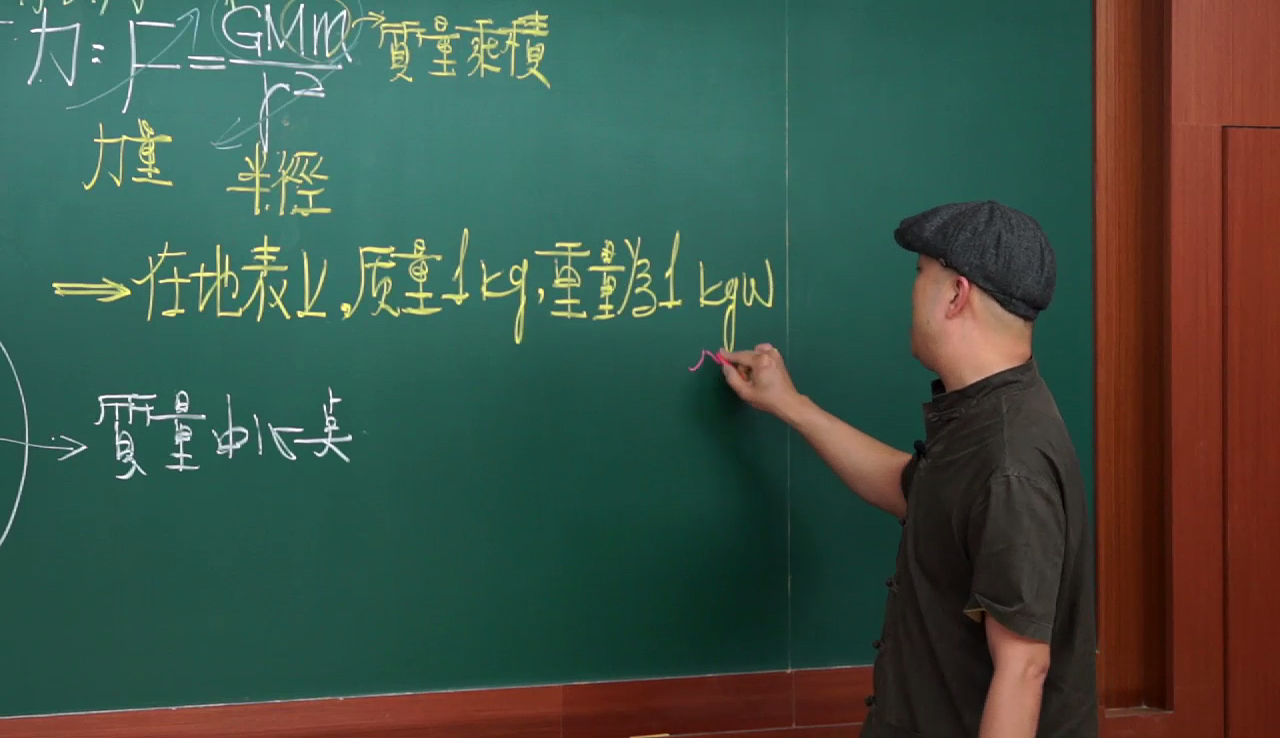 力:F=GMm/r² → 質量乘積
力量 半徑
⇒在地表上,质量1kg,重量為1kgw
→質量中心点